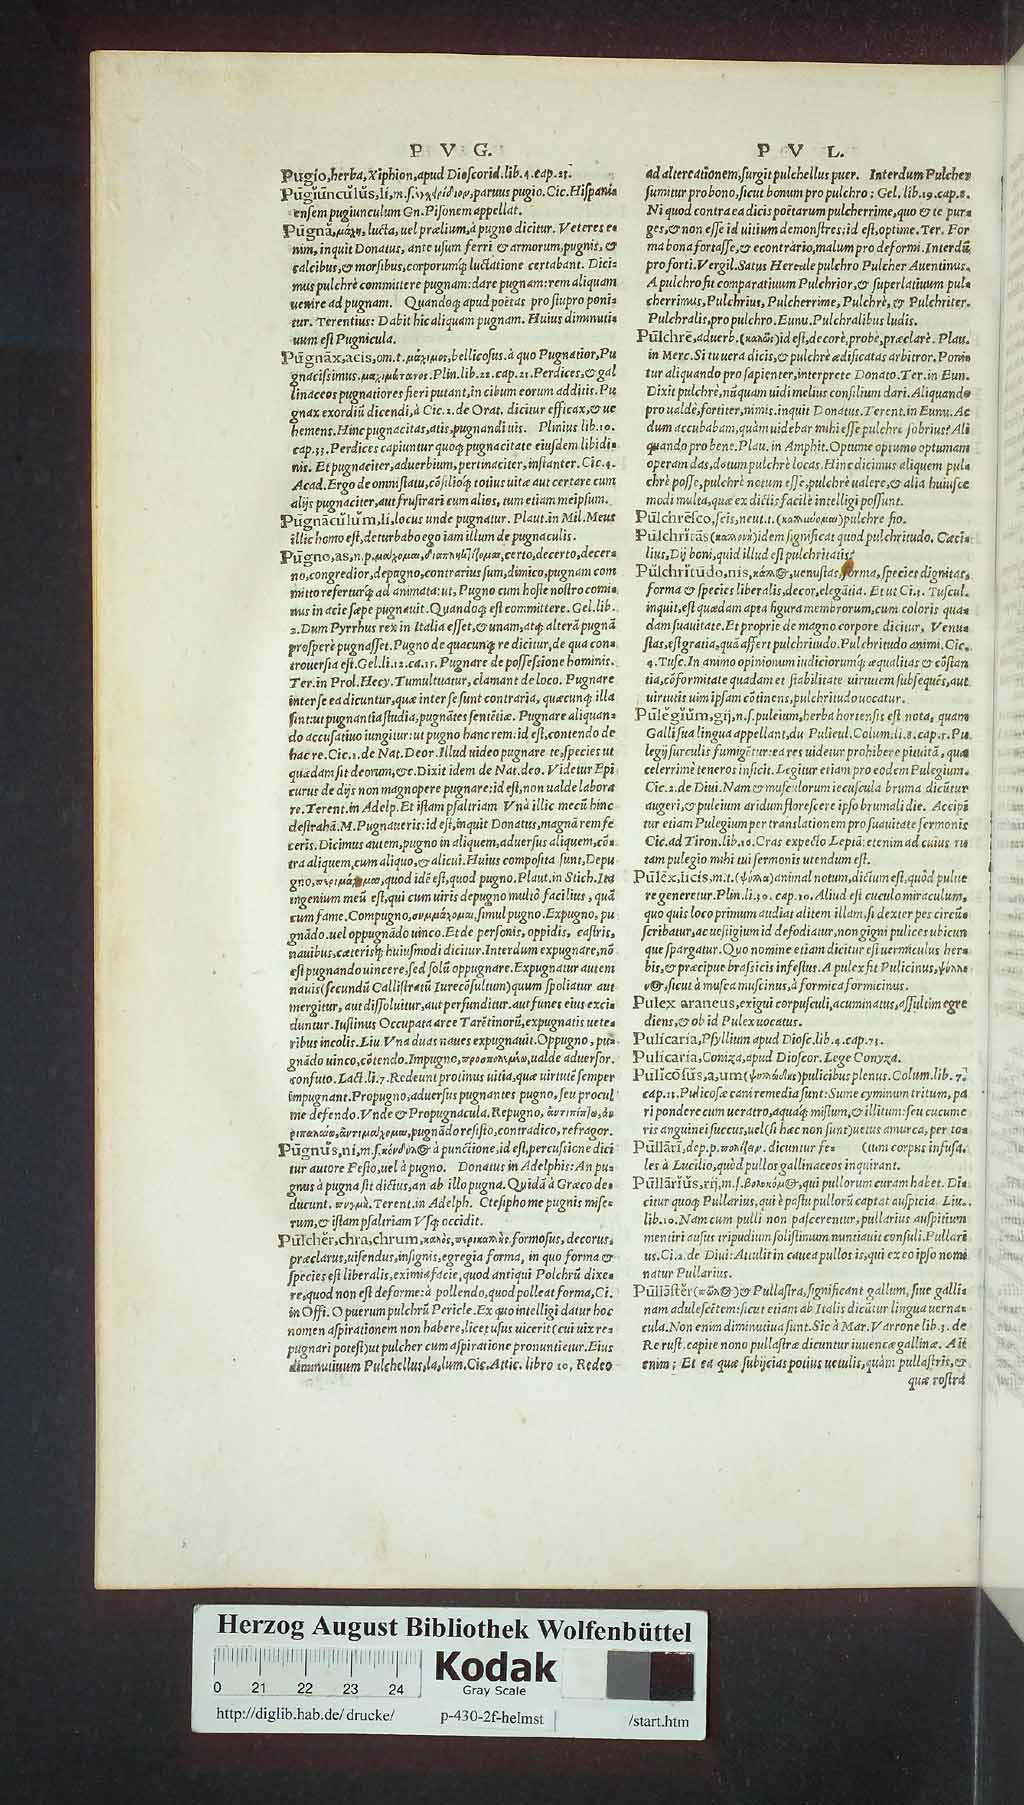 P V G.
Pugio, herba, Xiphion, apud Dioscorid. lib. 4. cap. 25.
Pugiūncŭlŭs, li, m. s. paruus pugio. Cic. Hispani-
ensem pugiunculum Gn. Pisonem appellat.
Pūgnă, μάχη, lucta, uel prælium, à pugno dicitur. Veteres e-
nim, inquit Donatus, ante usum ferri & armorum, pugnis, &
calcibus, & morsibus, corporumq́; luctatione certabant. Dici-
mus pulchrè committere pugnam: dare pugnam: rem aliquam
uenire ad pugnam. Quandoq; apud poëtas pro stupro poni-
tur. Terentius: Dabit hic aliquam pugnam. Huius diminuti-
uum est Pugnicula.
Pūgnāx, acis, om. t. μάχιμος, bellicosus. à quo Pugnatior, Pu
gnacissimus. μαχιμώτατος. Plin. lib. 22. cap. 21. Perdices, & gal
linaceos pugnatiores fieri putant, in cibum eorum additis. Pu
gnax exordiū dicendi, à Cic. 2. de Orat. dicitur efficax, & ue
hemens. Hinc pugnacitas, atis, pugnandi uis. Plinius lib. 10.
cap. 33. Perdices capiuntur quoq; pugnacitate eiusdem libidi-
nis. Et pugnaciter, aduerbium, pertinaciter, instanter. Cic. 4.
Acad. Ergo de omni statu, cōsilioq́; totius uitæ aut certare cum
alijs pugnaciter, aut frustrari cum alios, tum etiam meipsum.
Pūgnācŭlum, li, locus unde pugnatur. Plaut. in Mil. Meus
illic homo est, deturbabo ego iam illum de pugnaculis.
Pūgno, as, n. p. μάχομαι, certo, decerto, decer-
no, congredior, depugno, contrarius sum, dimico, pugnam com
mitto referturq́; ad animata: ut, Pugno cum hoste nostro comi-
nus in acie sæpe pugnauit. Quandoq; est committere. Gel. lib.
2. Dum Pyrrhus rex in Italia esset, & unam, atq; alterā pugnā
prosperè pugnasset. Pugno de quacunq; re dicitur, de qua con-
trouersia est. Gel. li. 12. ca. 15. Pugnare de possessione hominis.
Ter. in Prol. Hecy. Tumultuatur, clamant de loco. Pugnare
inter se ea dicuntur, quæ inter se sunt contraria, quæcunq; illa
sint: ut pugnantia studia, pugnātes sentētiæ. Pugnare aliquan-
do accusatiuo iungitur: ut pugno hanc rem: id est, contendo de
hac re. Cic. 1. de Nat. Deor. Illud uideo pugnare te, species ut
quædam sit deorum, &c. Dixit idem de Nat. deo. Videtur Epi
curus de dijs non magnopere pugnare: id est, non ualde labora
re. Terent. in Adelp. Et istam psaltriam Vnà illic mecū hinc
destrahā. M. Pugnaueris: id est, inquit Donatus, magnā rem fe
ceris. Dicimus autem, pugno in aliquem, aduersus aliquem, cō-
tra aliquem, cum aliquo, & alicui. Huius composita sunt, Depu
gno, quod idē est, quod pugno. Plaut. in Stich. Ita
ingenium meū est, qui cum uiris depugno multò facilius, quā
cum fame. Compugno, συμμάχομαι, simul pugno. Expugno, pu
gnādo. uel oppugnādo uinco. Et de personis, oppidis, castris,
nauibus, cæterisq́; huiusmodi dicitur. Interdum expugnare, nō
est pugnando uincere, sed solū oppugnare. Expugnatur autem
nauis (secundū Callistratū Iurecōsultum) quum spoliatur aut
mergitur, aut dissoluitur, aut perfunditur. aut funes eius exci-
duntur. Iustinus Occupata arce Tarētinorū, expugnatis uete-
ribus incolis. Liu. Vna duas naues expugnauit. Oppugno, pu-
gnādo uinco, cōtendo. Impugno, προσπολεμέω, ualde aduersor.
confuto. Lact. li. 7. Redeunt protinus uitia, quæ uirtutē semper
impugnant. Propugno, aduersus pugnantes pugno, seu procul
me defendo. Vnde & Propugnacula. Repugno,
ἀντιμάχομαι, pugnādo resisto, contradico, refragor.
Pūgnŭs, ni, m. s. à punctione, id est, percussione dici
tur autore Festo, uel à pugno. Donatus in Adelphis: An pu-
gnus à pugna sit dictus, an ab illo pugna. Quidā à Græco de-
ducunt. πυγμὴ. Terent. in Adelph. Ctesipho me pugnis mise-
rum, & istam psaltriam Vsq; occidit.
Pūlchĕr, chra, chrum, καλὸς, περικαλλὴς. formosus, decorus,
præclarus, uisendus, insignis, egregia forma, in quo forma &
species est liberalis, eximia facie, quod antiqui Polchrū dixe-
re, quod non est deforme: à pollendo, quod polleat forma, Ci.
in Offi. O puerum pulchrū Pericle. Ex quo intelligi datur hoc
nomen aspirationem non habere, licet usus uicerit (cui uix re-
pugnari potest) ut pulcher cum aspiratione pronuntietur. Eius
diminutiuum Pulchellus, la, lum. Cic. Attic. libro 10, Redeo
P V L.
ad altercationem, surgit pulchellus puer. Interdum Pulcher
sumitur pro bono, sicut bonum pro pulchro: Gel. lib. 19. cap. 8.
Ni quod contra ea dicis poëtarum pulcherrime, quo & te pur-
ges, & non esse id uitium demonstres: id est, optime. Ter. For
ma bona fortasse, & econtràrio, malum pro deformi. Interdū
pro forti. Vergil. Satus Hercule pulchro Pulcher Auentinus.
A pulchro fit comparatiuum Pulchrior, & superlatiuum pul-
cherrimus, Pulchrius, Pulcherrime, Pulchrè, & Pulchriter.
Pulchralis, pro pulchro. Eunu. Pulchralibus ludis.
Pūlchrē, aduerb. (καλῶς) id est, decorè, probè, præclarè. Plau.
in Merc. Si tu uera dicis, & pulchrè ædificatas arbitror. Poni-
tur aliquando pro sapienter, interprete Donato. Ter. in Eun.
Dixit pulchrè, nūquam uidi melius consilium dari. Aliquando
pro ualdè, fortiter, nimis. inquit Donatus. Terent. in Eunu. Ac
dum accubabam, quàm uidebar mihi esse pulchre sobrius? Ali
quando pro bene. Plau. in Amphit. Optume optumo optumam
operam das, dotum pulchrè locas. Hinc dicimus aliquem pul-
chrè posse, pulchrè notum esse, pulchrè ualere, & alia huiusce
modi multa, quæ ex dictis facilè intelligi possunt.
Pūlchrēsco, scis, neut. t. pulchre fio.
Pūlchrĭtās (καλλονὴ) idem significat quod pulchritudo. Cæci-
lius, Dij boni, quid illud est pulchritatis?
Pūlchrĭtūdo, nis, uenustas, forma, species dignitas,
forma & species liberalis, decor, elegātia. Et ut Ci. 4. Tuscul.
inquit, est quædam apta figura membrorum, cum coloris qua-
dam suauitate. Et proprie de magno corpore dicitur, Venu-
stas, est gratia, quā affert pulchritudo. Pulchritudo animi. Cic.
4. Tusc. In animo opinionum iudiciorumq́; æqualitas & cōstan
tia, cōformitate quadam et stabilitate uirtutem subsequēs, aut
uirtutis uim ipsam cōtinens, pulchritudo uocatur.
Pūlĕgĭŭm, gij, n. s. puleium, herba hortensis est nota, quam
Galli sua lingua appellant, du Pulieul. Colum. li. 8. cap. 5. Pu
legij surculis fumigētur: ea res uidetur prohibere pituitā, quæ
celerrimè teneros inficit. Legitur etiam pro eodem Pulegium.
Cic. 2. de Diui. Nam & musculorum iecuscula bruma dicūtur
augeri, & puleium aridum florescere ipso brumali die. Accipi
tur etiam Pulegium per translationem pro suauitate sermonis
Cic. ad Tiron. lib. 16. Cras expecto Leptā: etenim ad cuius ru
tam pulegio mihi tui sermonis utendum est.
Pūlĕx, licis, m. t. (ψύλλα) animal notum, dictum est, quòd pulue
re generetur. Plin. li. 30. cap. 10. Aliud est cuculo miraculum,
quo quis loco primum audiat alitem illam, si dexter pes circū-
scribatur, ac uestigium id defodiatur, non gigni pulices ubicun
que spargatur. Quo nomine etiam dicitur est uermiculus her-
bis, & præcipue brassicis infestus. A pulex fit Pulicinus,
sicut à musca muscinus, à formica formicinus.
Pulex araneus, exigui corpusculi, acuminatus, assultim egre
diens, & ob id Pulex uocatus.
Pulicaria, Psyllium apud Diosc. lib. 4. cap. 73.
Pulicaria, Coniza, apud Dioscor. Lege Conyza.
Pūlĭcōsŭs, a, um pulicibus plenus. Colum. lib. 7.
cap. 13. Pulicosæ cani remedia sunt: Sume cyminum tritum, pa
ri pondere cum ueratro, aquaq́; mistum, & illitum: seu cucume
ris anguinei succus, uel (si hæc non sunt) uetus amurca, per to-
Pullāri, dep. p. dicuntur fe- (tum corpus infusa.
les à Lucilio, quòd pullos gallinaceos inquirant.
Pūllārĭŭs, rij, m. s. qui pullorum curam habet. Di-
citur quoq; Pullarius, qui è pastu pullorū captat auspicia. Liu.
lib. 10. Nam cum pulli non pascerentur, pullarius auspitium
mentiri ausus tripudium solistimum nuntiauit consuli. Pullari
us. Ci. 2. de Diui: Attulit in cauea pullos is, qui ex eo ipso nomi
natur Pullarius.
Pūllāstĕr & Pullastra, significant gallum, siue galli-
nam adulescētem: sicut etiam ab Italis dicūtur lingua uerna-
cula. Non enim diminutiua sunt. Sic à Mar. Varrone lib. 3. de
Re rust. capite nono pullastræ dicuntur iuuencæ gallinæ. Ait
enim; Et ea quæ subijcias potius uetulis, quàm pullastris, &
quæ rostra
Herzog August Bibliothek Wolfenbüttel
Kodak
Gray Scale
0 21 22 23 24
http://diglib.hab.de/drucke/ p-430-2f-helmst /start.htm